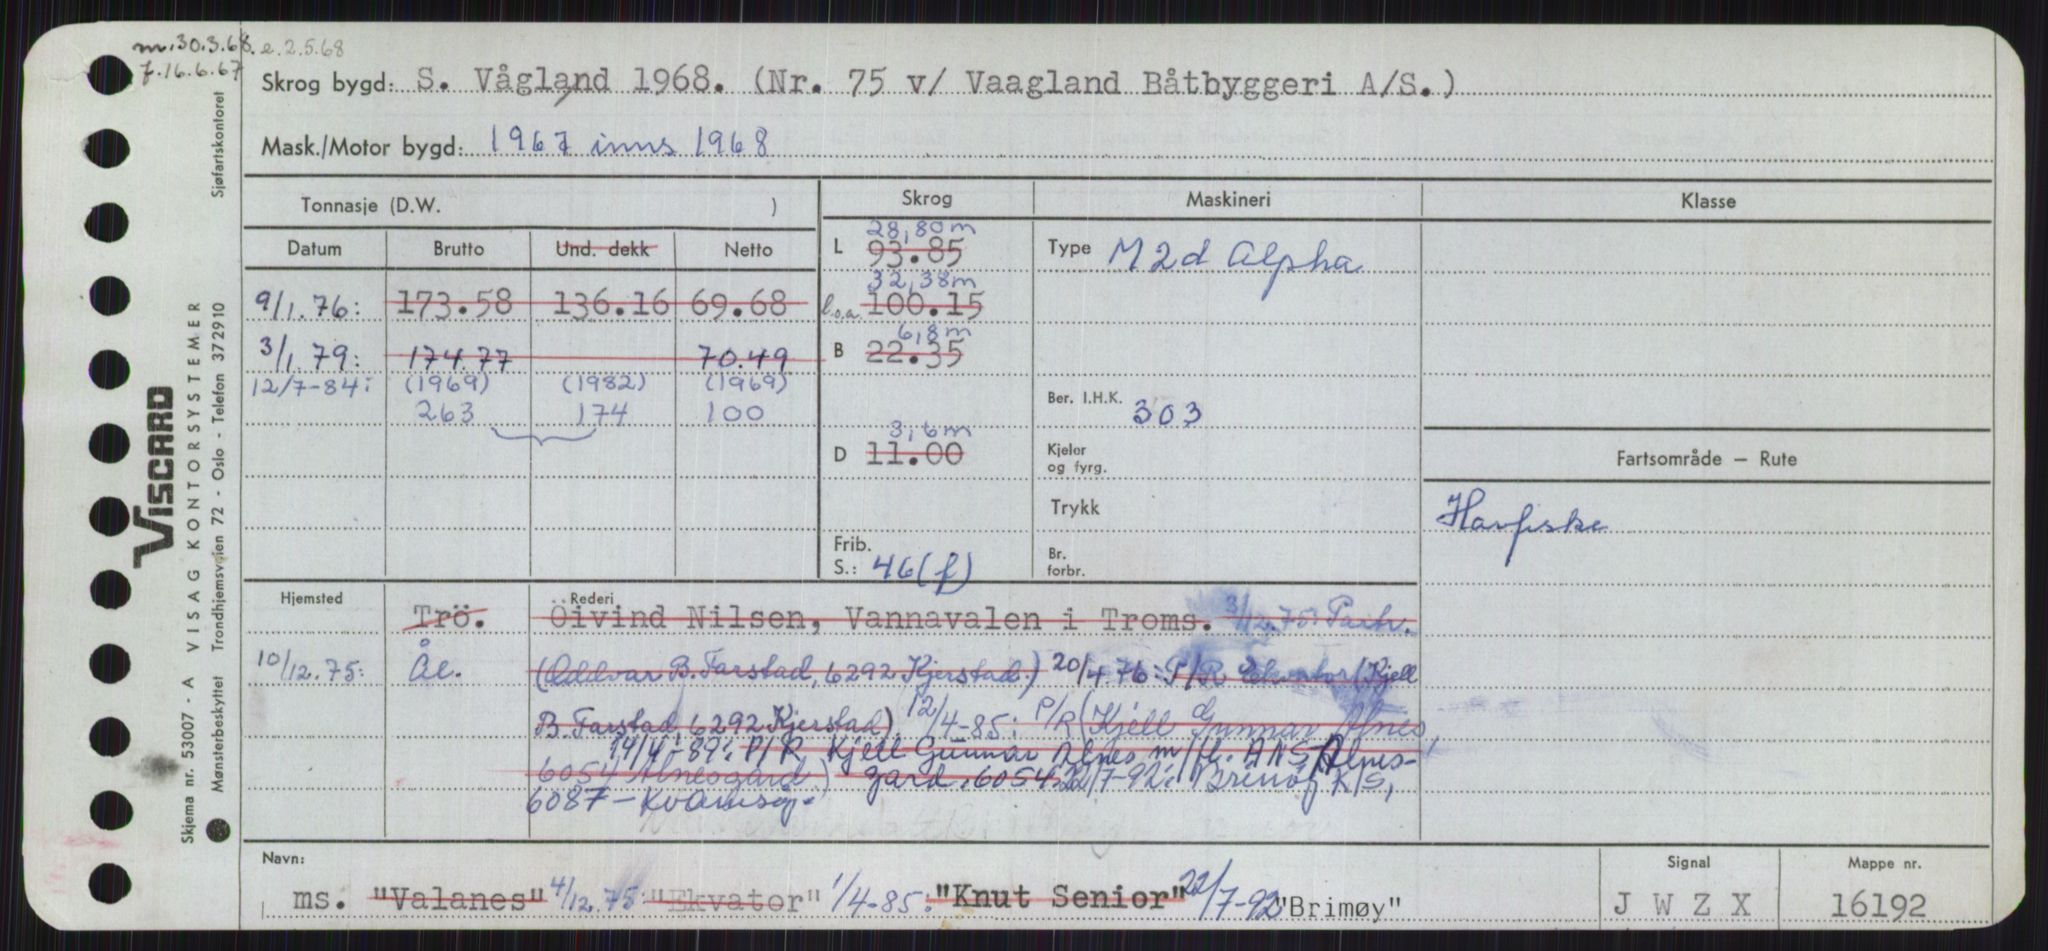 m.30.3.68. e.2.5.68
f.16.6.67
Skrog bygd: S. Vågland 1968. (Nr. 75 v/ Vaagland Båtbyggeri A/S.)
Mask./Motor bygd: 1967 inns 1968
Tonnasje (D.W. ) Skrog Maskineri Klasse
Datum Brutto Und. dekk Netto
L 28,80m 93.85 Type M2d Alpha
9/1.76: 173.58 136.16 69.68 l.o.a. 32,38m 100.15
3/1.79: 174.77 70.49 B 6,8m 22.35
12/7-84: (1969) (1982) (1969)
263 174 100 Ber. I.H.K. 303
D 3,6m 11.00 Kjeler og fyrg. Fartsområde – Rute
Trykk Havfiske
Frib. S.: 46(f) Br. forbr.
Hjemsted Rederi
Trö. Öivind Nilsen, Vannavalen i Troms. 3/12.75: Partr.
10/12.75: Ål. (Oddvar B. Farstad, 6292 Kjerstad.) 20/4.76: P/R Ekvator (Kjell
B. Farstad, 6292 Kjerstad) 12/4-85: P/R (Kjell Gunnar Alnes,
14/4-89: P/R Kjell Gunnar Alnes m/fl. ANS, Alnes-
6054 Alnesgard) gard, 6054. 22/7-92: Brimøy K/S,
6087 – Kvamsøy.
Navn: Signal Mappe nr.
ms. "Valanes" 4/12.75: "Ekvator" 1/4-85: "Knut Senior" 22/7-92 "Brimøy" J W Z X 16192
Skjema nr. 53007 - A VISAG KONTORSYSTEMER Sjøfartskontoret
Mønsterbeskyttet Trondhjemsveien 72 - Oslo - Telefon 372910
VISCARD